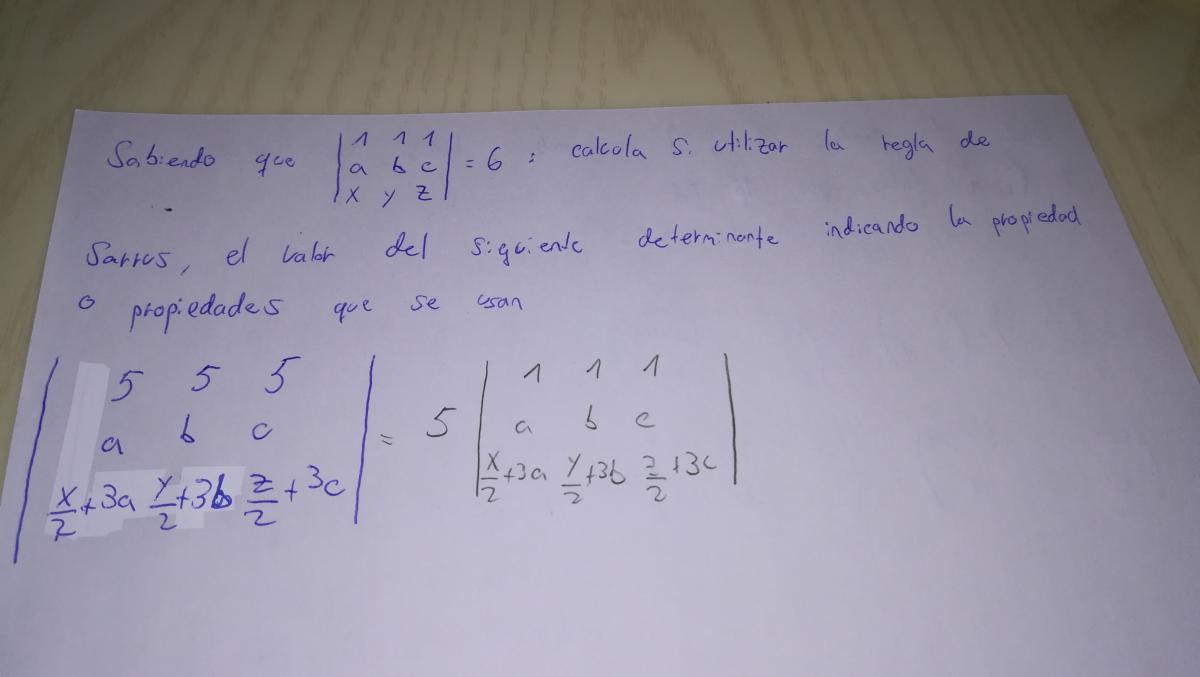 Sabiendo que | 1 1 1 | = 6 : calcola si utilizar la regla de
| a b c |
| x y z |
Sarrus, el valor del siguiente determinante indicando la propiedad
o propiedades que se usan
| 5 5 5 | = 5 | 1 1 1 |
| a b c | | a b c |
| x/2+3a y/2+3b z/2+3c | | x/2+3a y/2+3b z/2+3c |